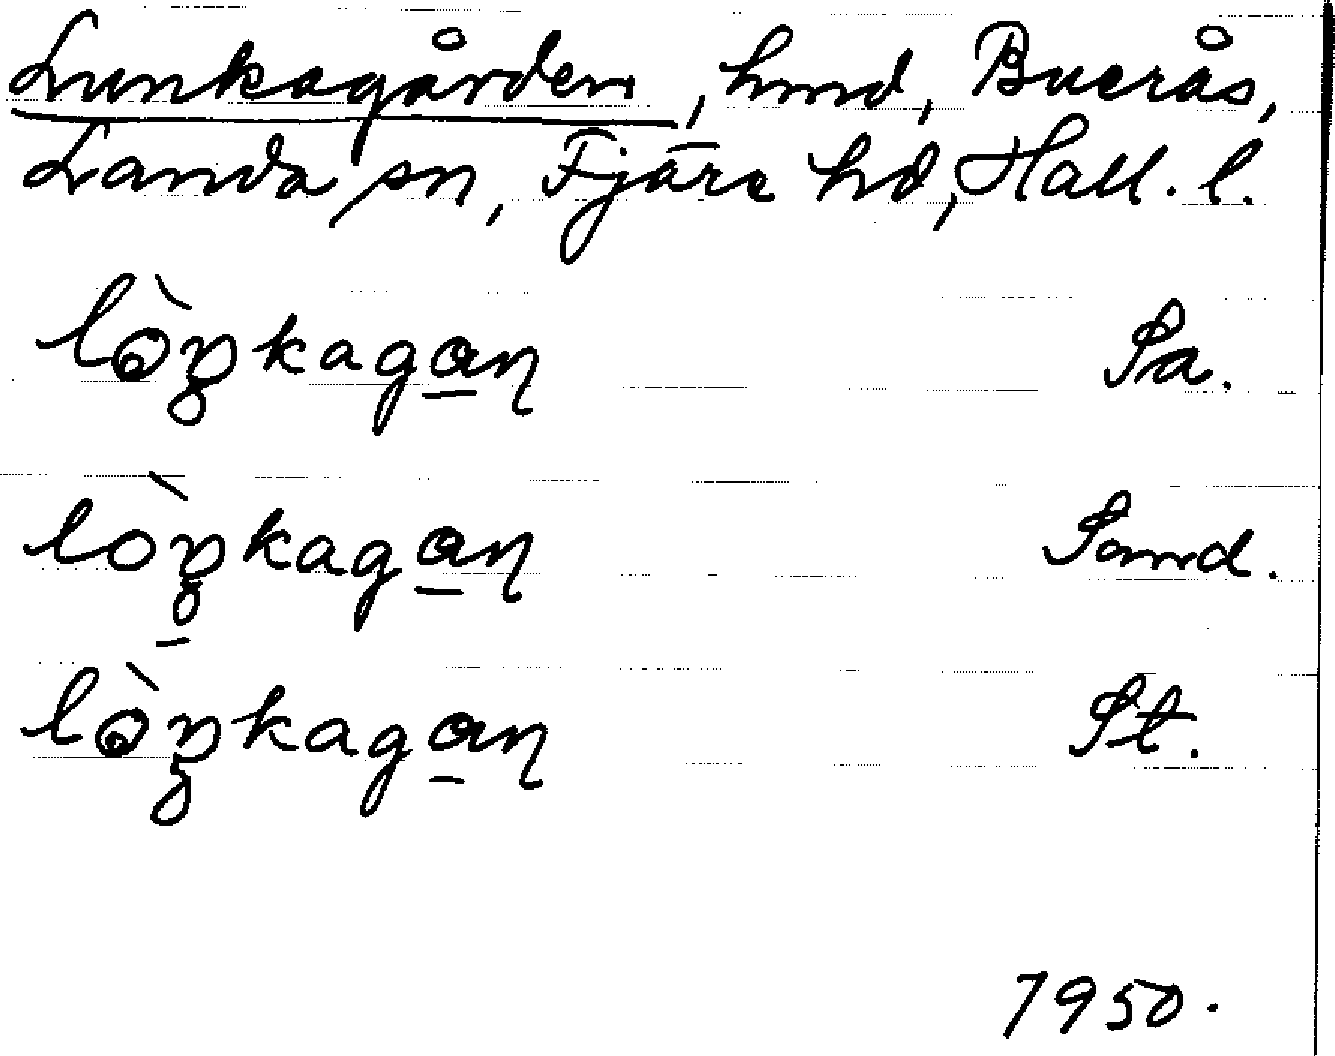 Lunkagården, hmd, Buerås,
Landa sn, Fjäre hd, Hall. l.
lòŋkagan Sa.
lòŋkagan Sand.
lòŋkagan St.
1950.